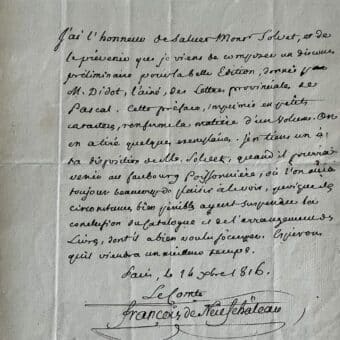 J'ai l'honneur de saluer Monsr Solvet, et de
le prévenir que je viens de composer un discours
préliminaire pour la belle Edition, donnée par
M. Didot, l'ainé, des Lettres provinciales de
Pascal. Cette préface, imprimée en petits
caracteres, renferme la matiere d'un volume. On
en a tiré quelques exemplaires. J'en tiens un à
la disposition de Solvet, quand il pourra
venir au faubourg Poissonniere, où l'on aura
toujours beaucoup de plaisir à le voir, quoique des
circonstances bien pénibles ayent suspendu la
confection du Catalogue et de l'arrangement des
Livres, dont il a bien voulu s'occuper. Espérons
qu'il viendra un meilleur temps.
Paris, le 16 xbre 1816.
Le Comte
françois de Neufchâteau